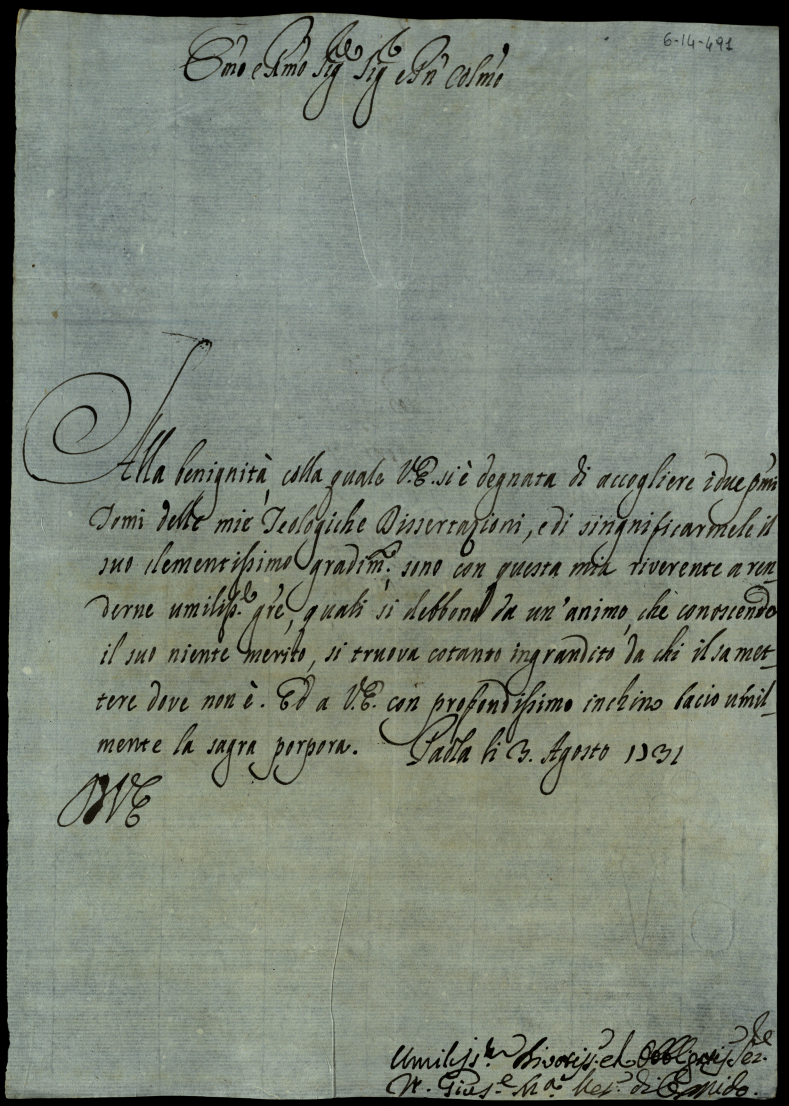 6-14-491
Emo e Rmo Sig.re Sig.r e Pn Colmo
Alla benignità, colla quale V.E. si è degnata di accogliere i due pmi
Tomi delle mie Teologiche Dissertazioni, e di singnificarmele il
suo clementissimo gradim.to, sono con questa mia riverente a ren-
derne umiliss.e gre, quali si debbono da un'animo, che conoscendo
il suo niente merito, si truova cotanto ingrandito da chi il sa met-
tere dove non è. Ed a V.E. con profondissimo inchino bacio umil-
mente la sagra porpora. Paola li 3. Agosto 1731
DVE
Umiliss.mo Divotiss. ed Obbligatiss. Ser.re
Gius.e M.a Ves.o di